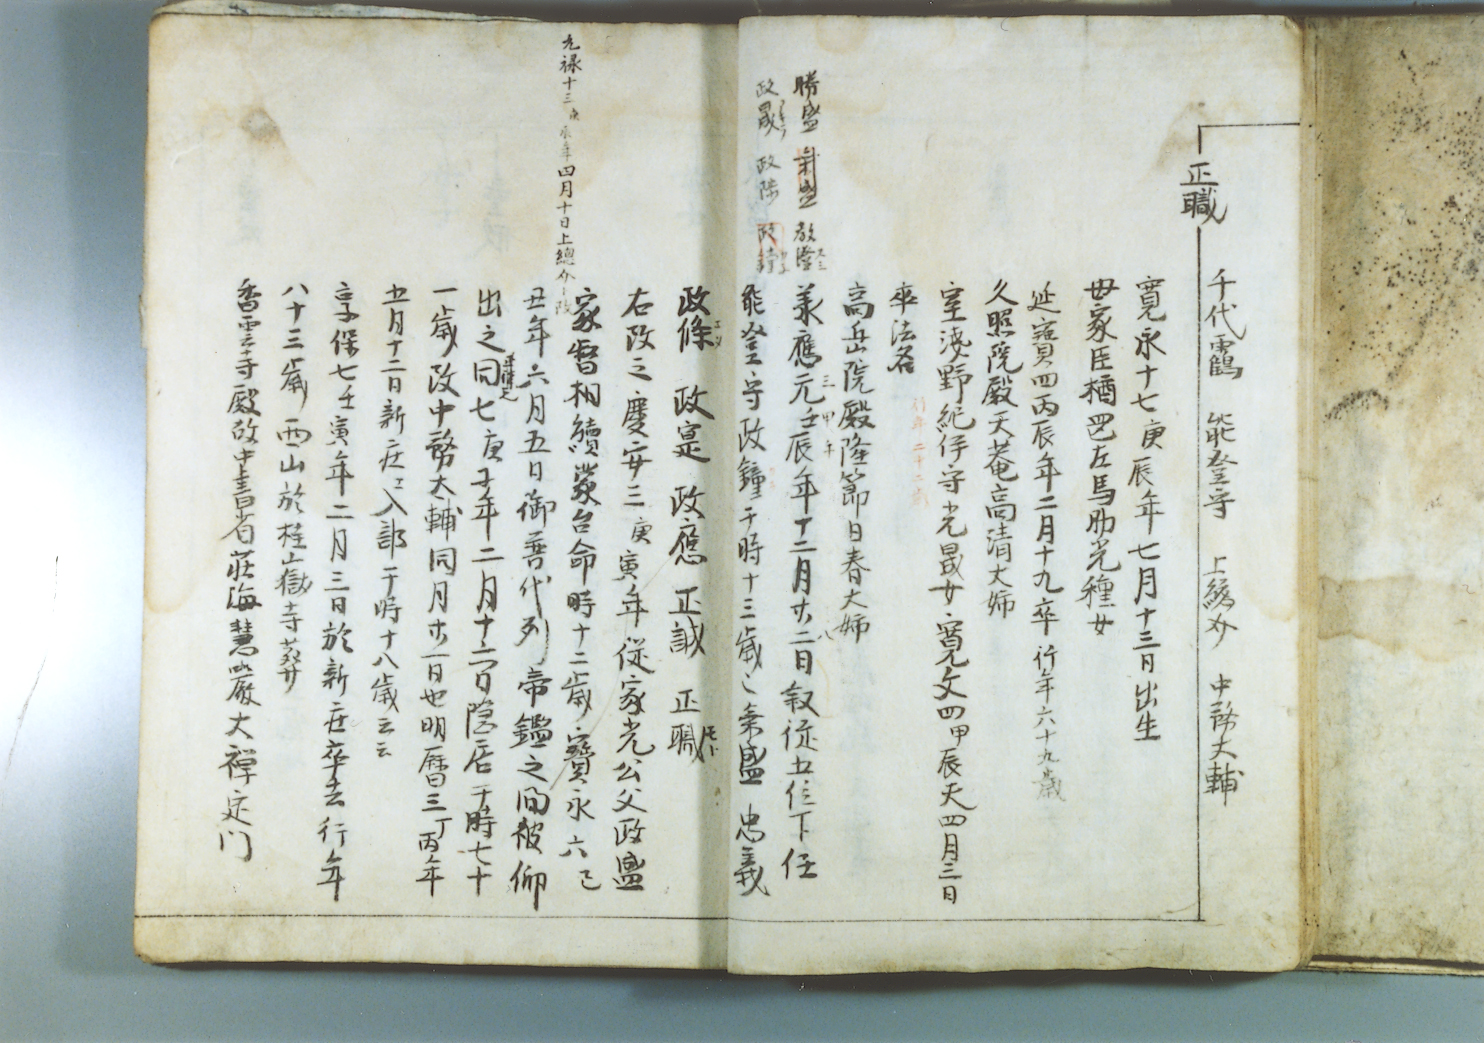 正職
千代靍 能登守 上総介 中務大輔
寛永十七庚辰年七月十三日出生
母家臣楢㠶左馬助光種女
延寶四丙辰年二月十九卒行年六十九歳
久照院殿天菴高清大姉
室浅野紀伊守光晟女寛文四甲辰天四月三日
卒法名
行年二十二歳
高岳院殿隆節日春大姉
承應元壬辰年十二月廿二日叙従五位下任
能登守政鐘于時十三歳 氣盛 忠義
勝盛 氣盛 教隆
政晟 政陟 政鐘
政條 政寔 政應 正誠 正職
右改之慶安三庚寅年従家光公父政盛
家督相續蒙台命時十二歳寶永六己
丑年六月五日御譜代列帝鑑之間被仰
元禄十三庚辰年四月十日上總介ニ改
出之同七庚子年二月十六日隠居于時七十
一歳改中務大輔同月廿一日也明暦三丁丙年
五月十二日新庄エ入部于時十八歳云云
享保七壬寅年二月三日於新庄卒去行年
八十三歳西山於桂山嶽寺葬
香雲寺殿故中書省荘海慧巌大禅定门